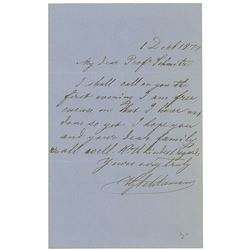 My dear Prof. Schmitz
I shall call on you the
first evening I am free
excuse me that I have not
done so yet. I hope you
and your dear family
are all well. With kindest regards
Yours very truly